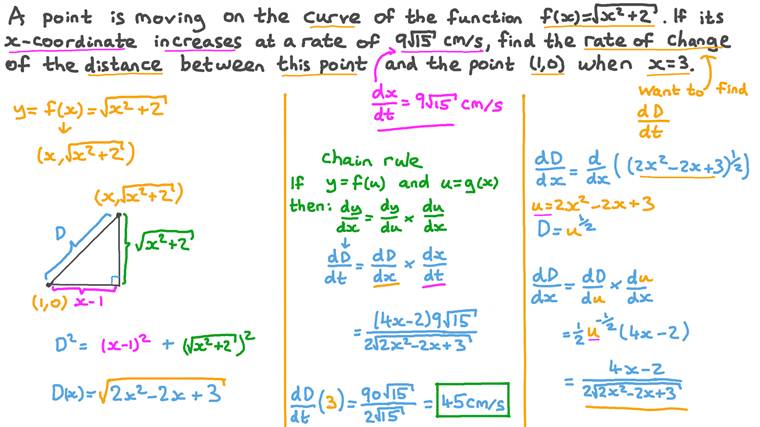 A point is moving on the curve of the function f(x)=√(x²+2). If its
x-coordinate increases at a rate of 9√15 cm/s, find the rate of change
of the distance between this point and the point (1,0) when x=3.
y= f(x)=√(x²+2)
↓
(x,√(x²+2))
(x,√(x²+2))
D
√(x²+2)
(1,0) x-1
D²= (x-1)² + (√(x²+2))²
D(x)=√(2x²-2x+3)
dx/dt = 9√15 cm/s
chain rule
If y=f(u) and u=g(x)
then: dy/dx = dy/du × du/dx
↓
dD/dt = dD/dx × dx/dt
= (4x-2)9√15 / 2√(2x²-2x+3)
dD/dt (3) = 90√15 / 2√15 = 45cm/s
want to find
dD/dt
dD/dx = d/dx ((2x²-2x+3)^½)
u=2x²-2x+3
D=u^½
dD/dx = dD/du × du/dx
=½u^-½(4x-2)
= 4x-2 / 2√(2x²-2x+3)